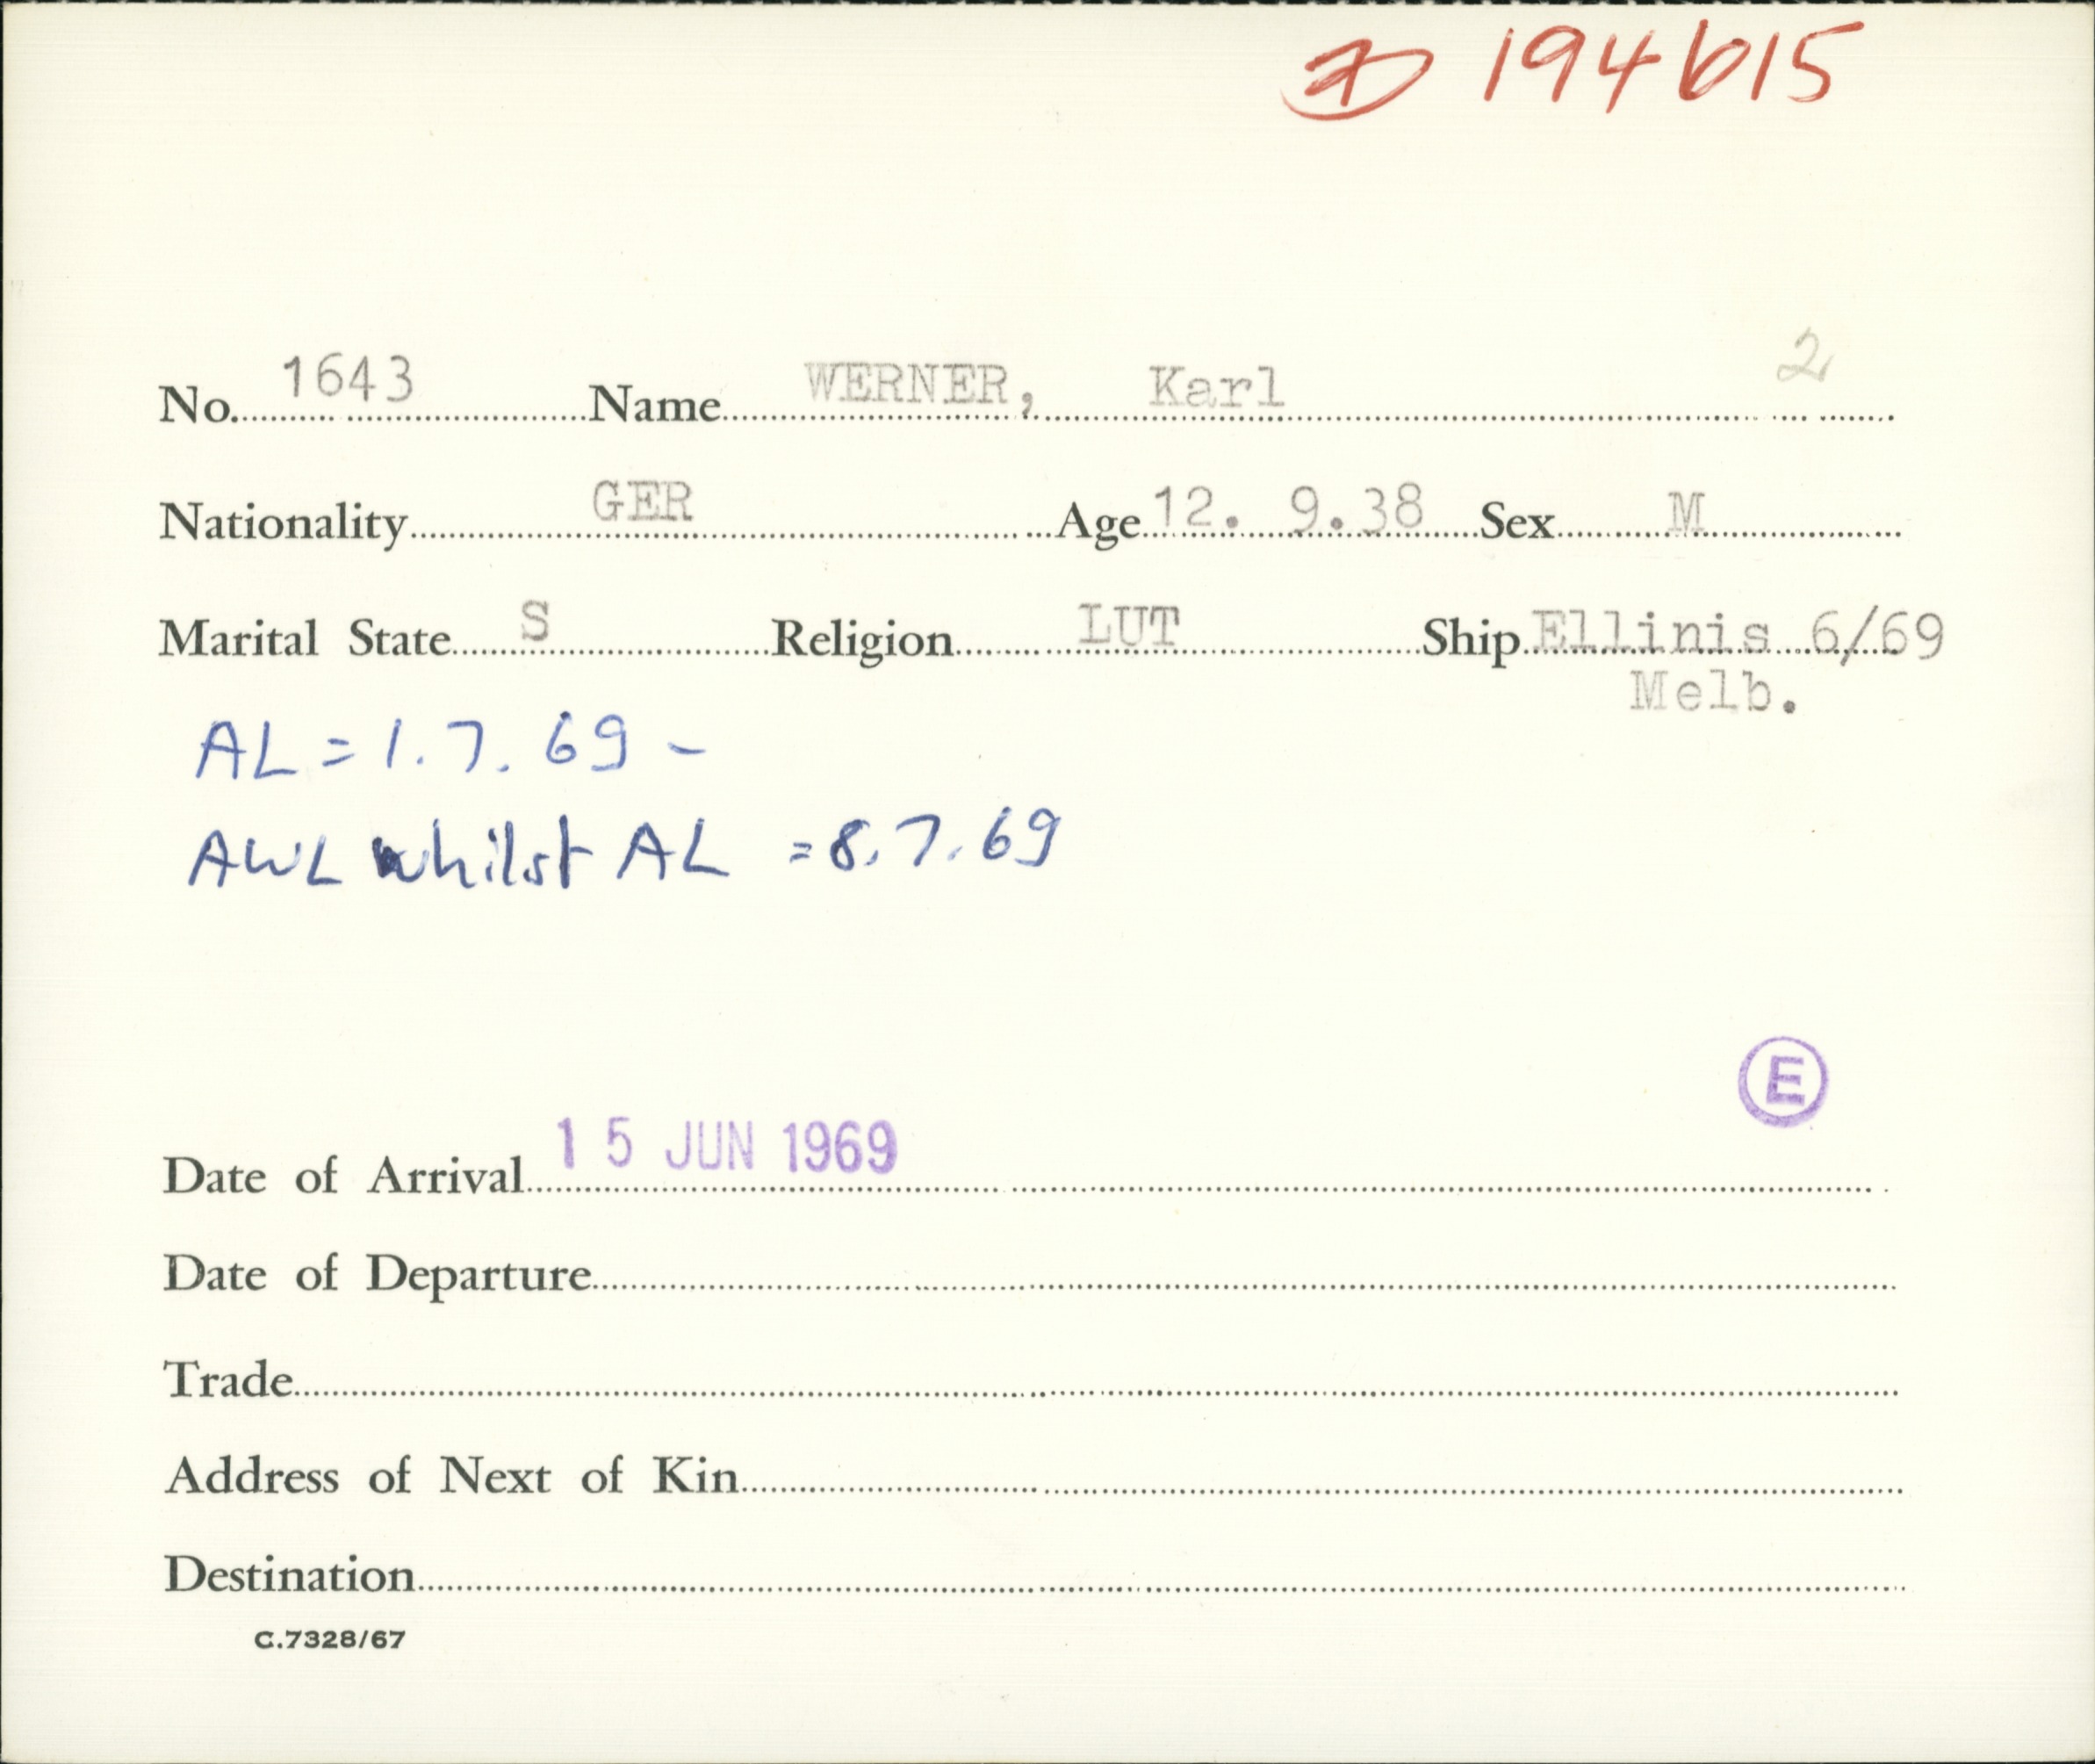 194615
No. 1643 Name WERNER, Karl 2
Nationality GER Age 12. 9.38 Sex M
Marital State S Religion LUT Ship Ellinis 6/69
Melb.
AL = 1.7.69 -
AWL whilst AL = 8.7.69
E
Date of Arrival 15 JUN 1969
Date of Departure
Trade
Address of Next of Kin
Destination
C.7328/67